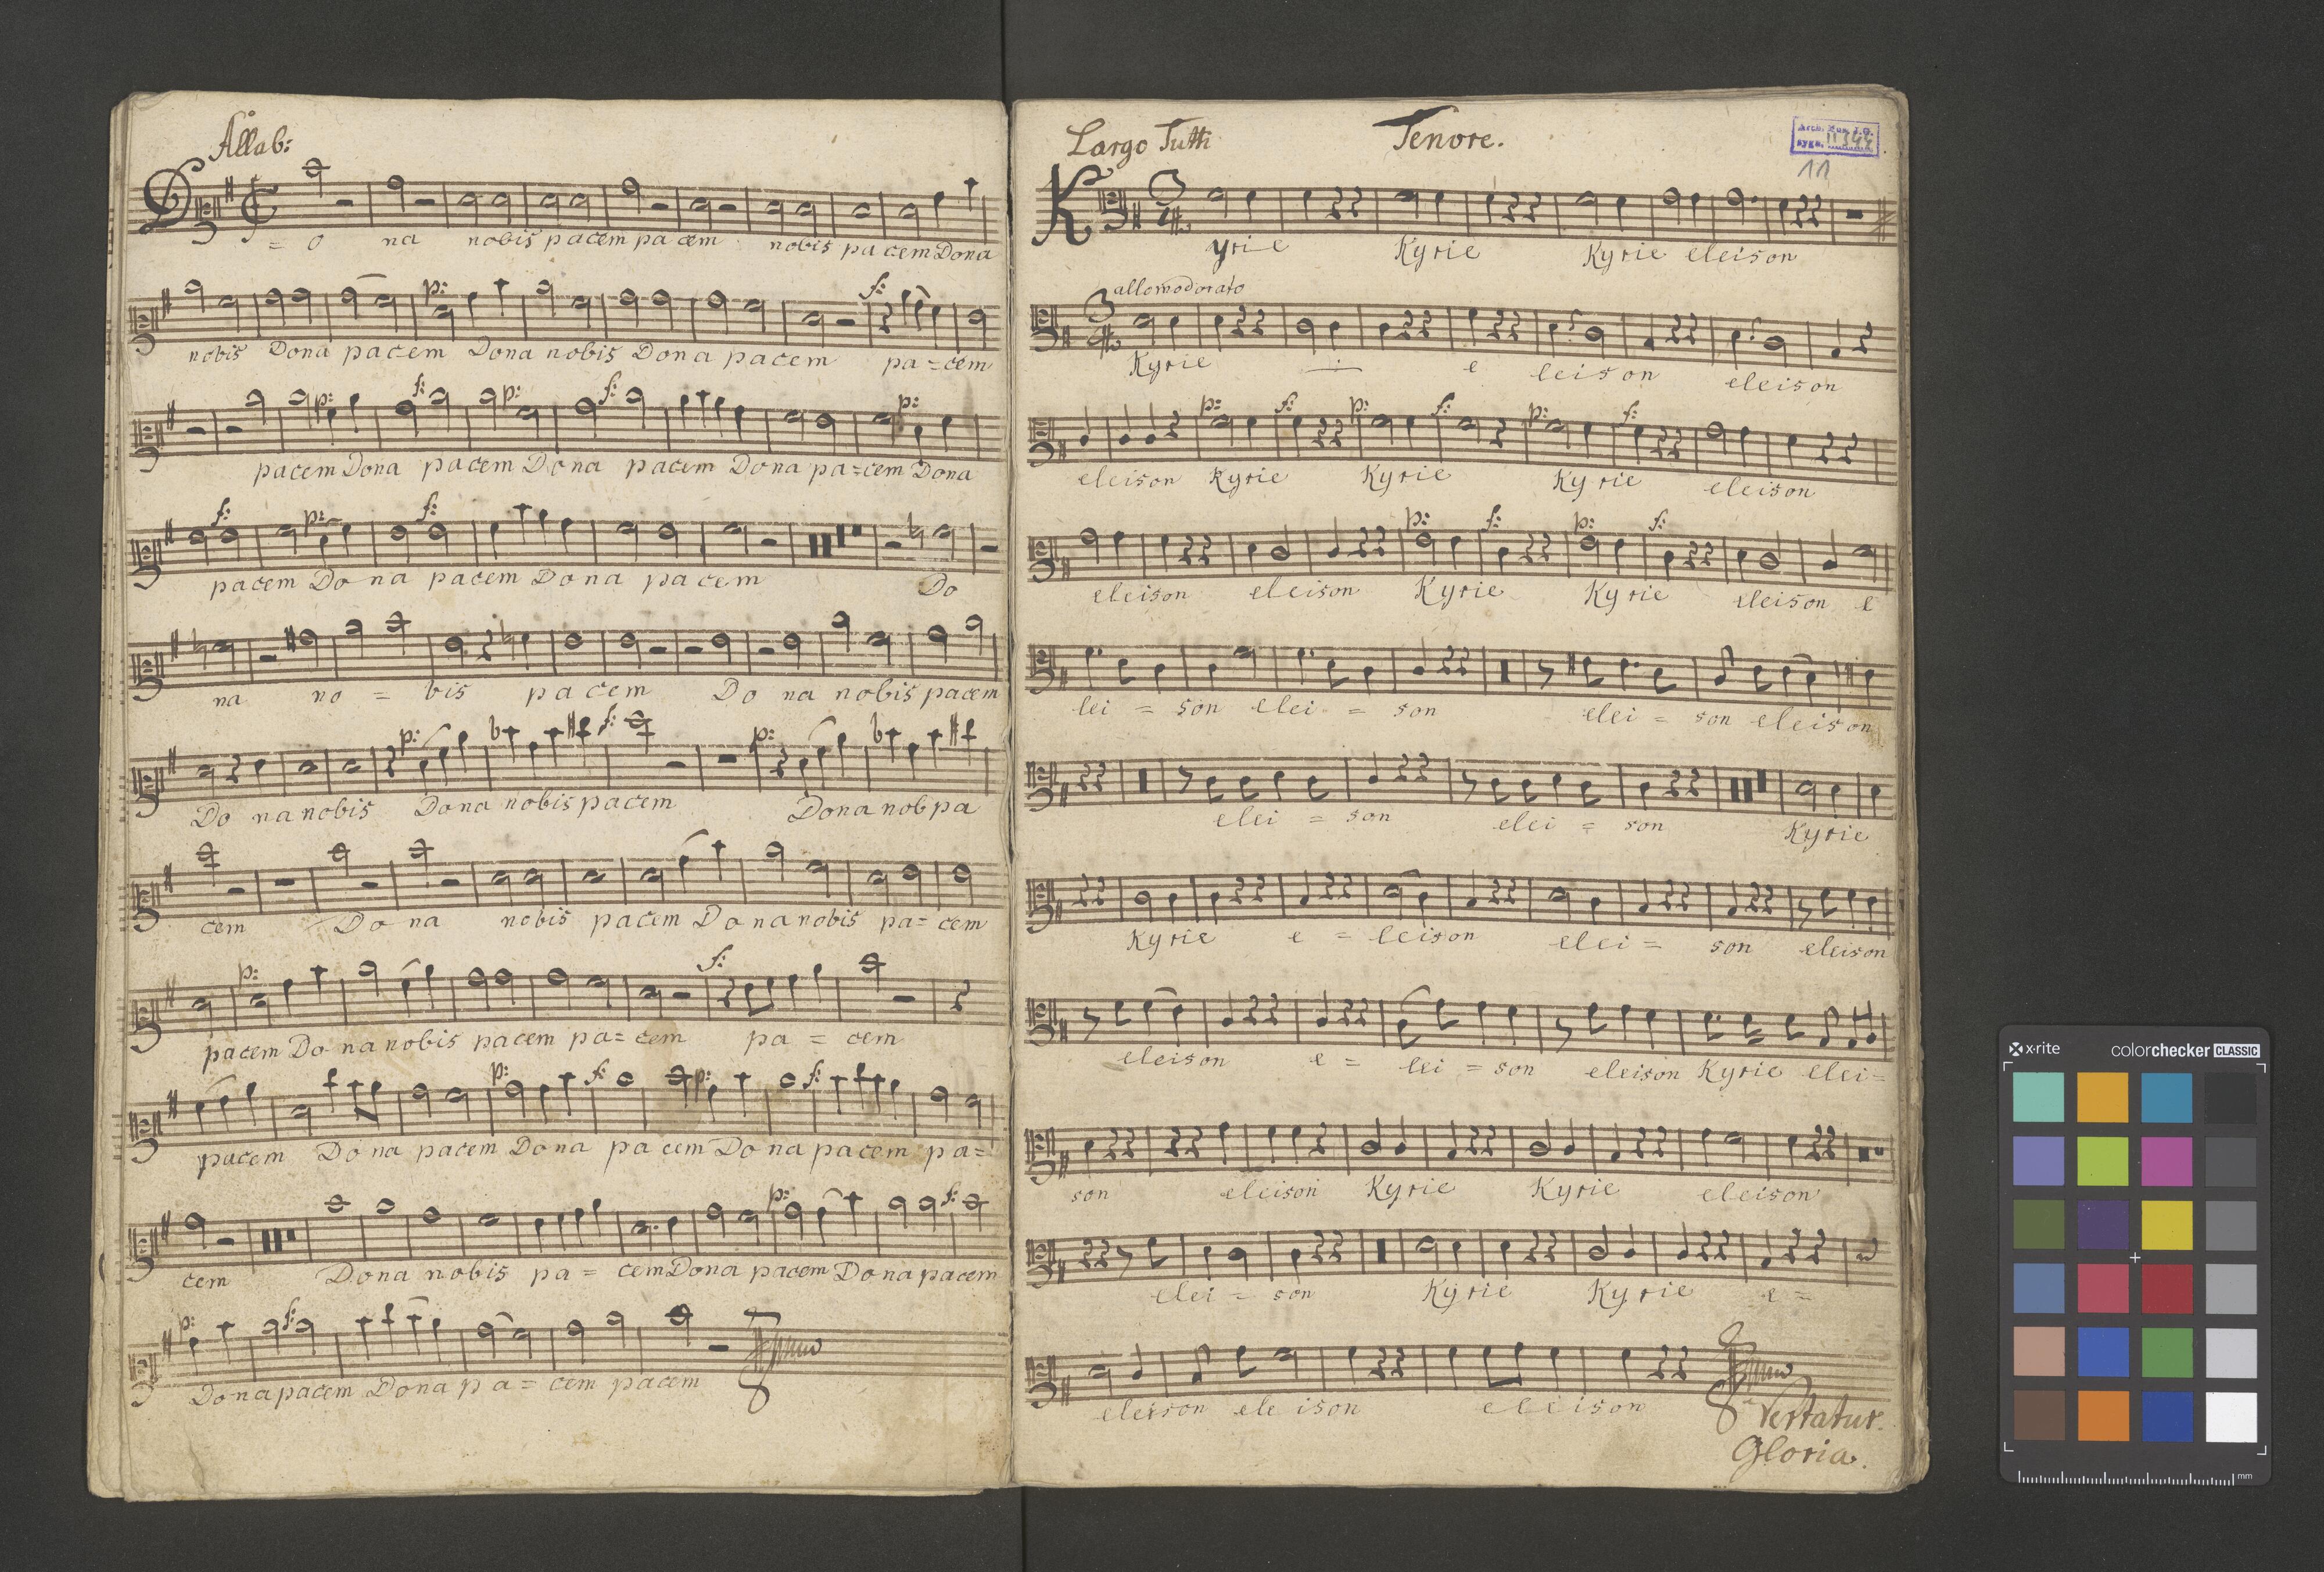 Allab:
D = o na nobis pacem pa cem nobis pa cem Dona
p: f:
nobis Dona pacem Dona nobis Dona pacem pa = cem
p: f: p: f: p:
pacem Dona pacem Dona pacem Dona pa = cem Dona
f: p: f:
pacem Do na pacem Dona pacem Do
na no = bis pacem Do na nobis pacem
p: f: p:
Do na nobis Dona nobis pacem Dona nob pa
cem Do na nobis pacem Do na nobis pa = cem
p: f:
pacem Do na nobis pacem pa = cem pa = cem
p: f: p: f:
pacem Do na pacem Dona pa cem Do na pacem pa =
p: f:
cem Dona nobis pa = cem Dona pacem Dona pacem
p: f:
Dona pacem Dona pa = cem pacem
Largo Tutti Tenore.
11
K yrie Kyrie Kyrie eleison
allomodorato
Kyrie e leison eleison
p: f: p: f: p: f:
eleison Kyrie Kyrie Kyrie eleison
p: f: p: f:
eleison eleison Kyrie Kyrie eleison e
lei = son elei = son elei = son eleison
elei = son elei = son Kyrie
Kyrie e = leison elei = son eleison
eleison e = lei = son eleison Kyrie elei =
son eleison Kyrie Kyrie eleison
elei = son Kyrie Kyrie e =
eleison ele ison eleison
Vertatur.
Gloria.
x-rite colorchecker CLASSIC
mm